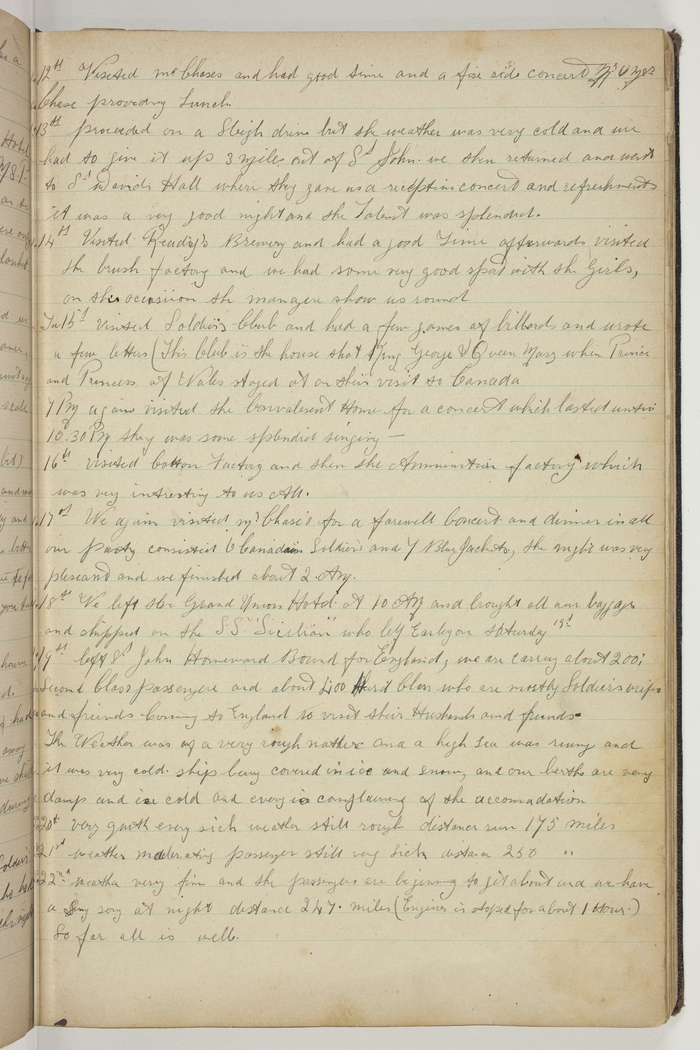 12th Visited Mr Chases and had good time and a fire side concert Mr & Mrs
Chase providing Lunch
13th proceeded on a Sleigh drive but the weather was very cold and we
had to give it up 3 miles out of St John. we then returned and went
to St Davids Hall where they gave us a reception concert and refreshments
it was a very good night and the Talent was splendid.
14th Visited Ready's Brewery and had a good Time afterwards visited
the brush factory and we had some very good sport with the Girls,
on the occasiion the manager show us round
15th visited Soldiers Club and had a few games of billards and wrote
a few letters (This Club is the house that King George V & Queen Mary when Prince
and Princess of Wales stayed at on their visit to Canada
7 PM again visited the Convalesent Home for a concert which lasted until
10.30 PM they was some splendid singing —
16th visited Cotton Factory and then the Ammunition factory which
was very intresting to us All.
17th We again visited Mr Chase's for a farewell Concert and dinner in all
our party consisted 6 Canadain Soldiers and 7 Blue Jackets, the night was very
pleseand and we finished about 2 AM.
18th We left the Grand Union Hotel at 10 AM and brought all our baggage
and shipped on the S.S "Sicilian" who left Early on Saturday 19th
19th left St John Homeward Bound for England, we are carring about 200
Second Class passengers and about 400 third Class who are mostly Soldiers wifes
and friends Coming to England to visit their Husbands and friends
The Weather was of a very rough nature and a high Sea was runing and
it was very cold. ship being covered in ice and snow, and our berths are very
damp and ice cold and every is complaining of the accomadation
20th very quith every sick weather still rough distance run 175 miles
21st weather moderating passenger still very Sick distance 250 "
22nd weather very fine and the passengers are begining to get about and we have
a Sing song at night distance 247. miles (Engines is stoped for about 1 Hour.)
So far all is well.